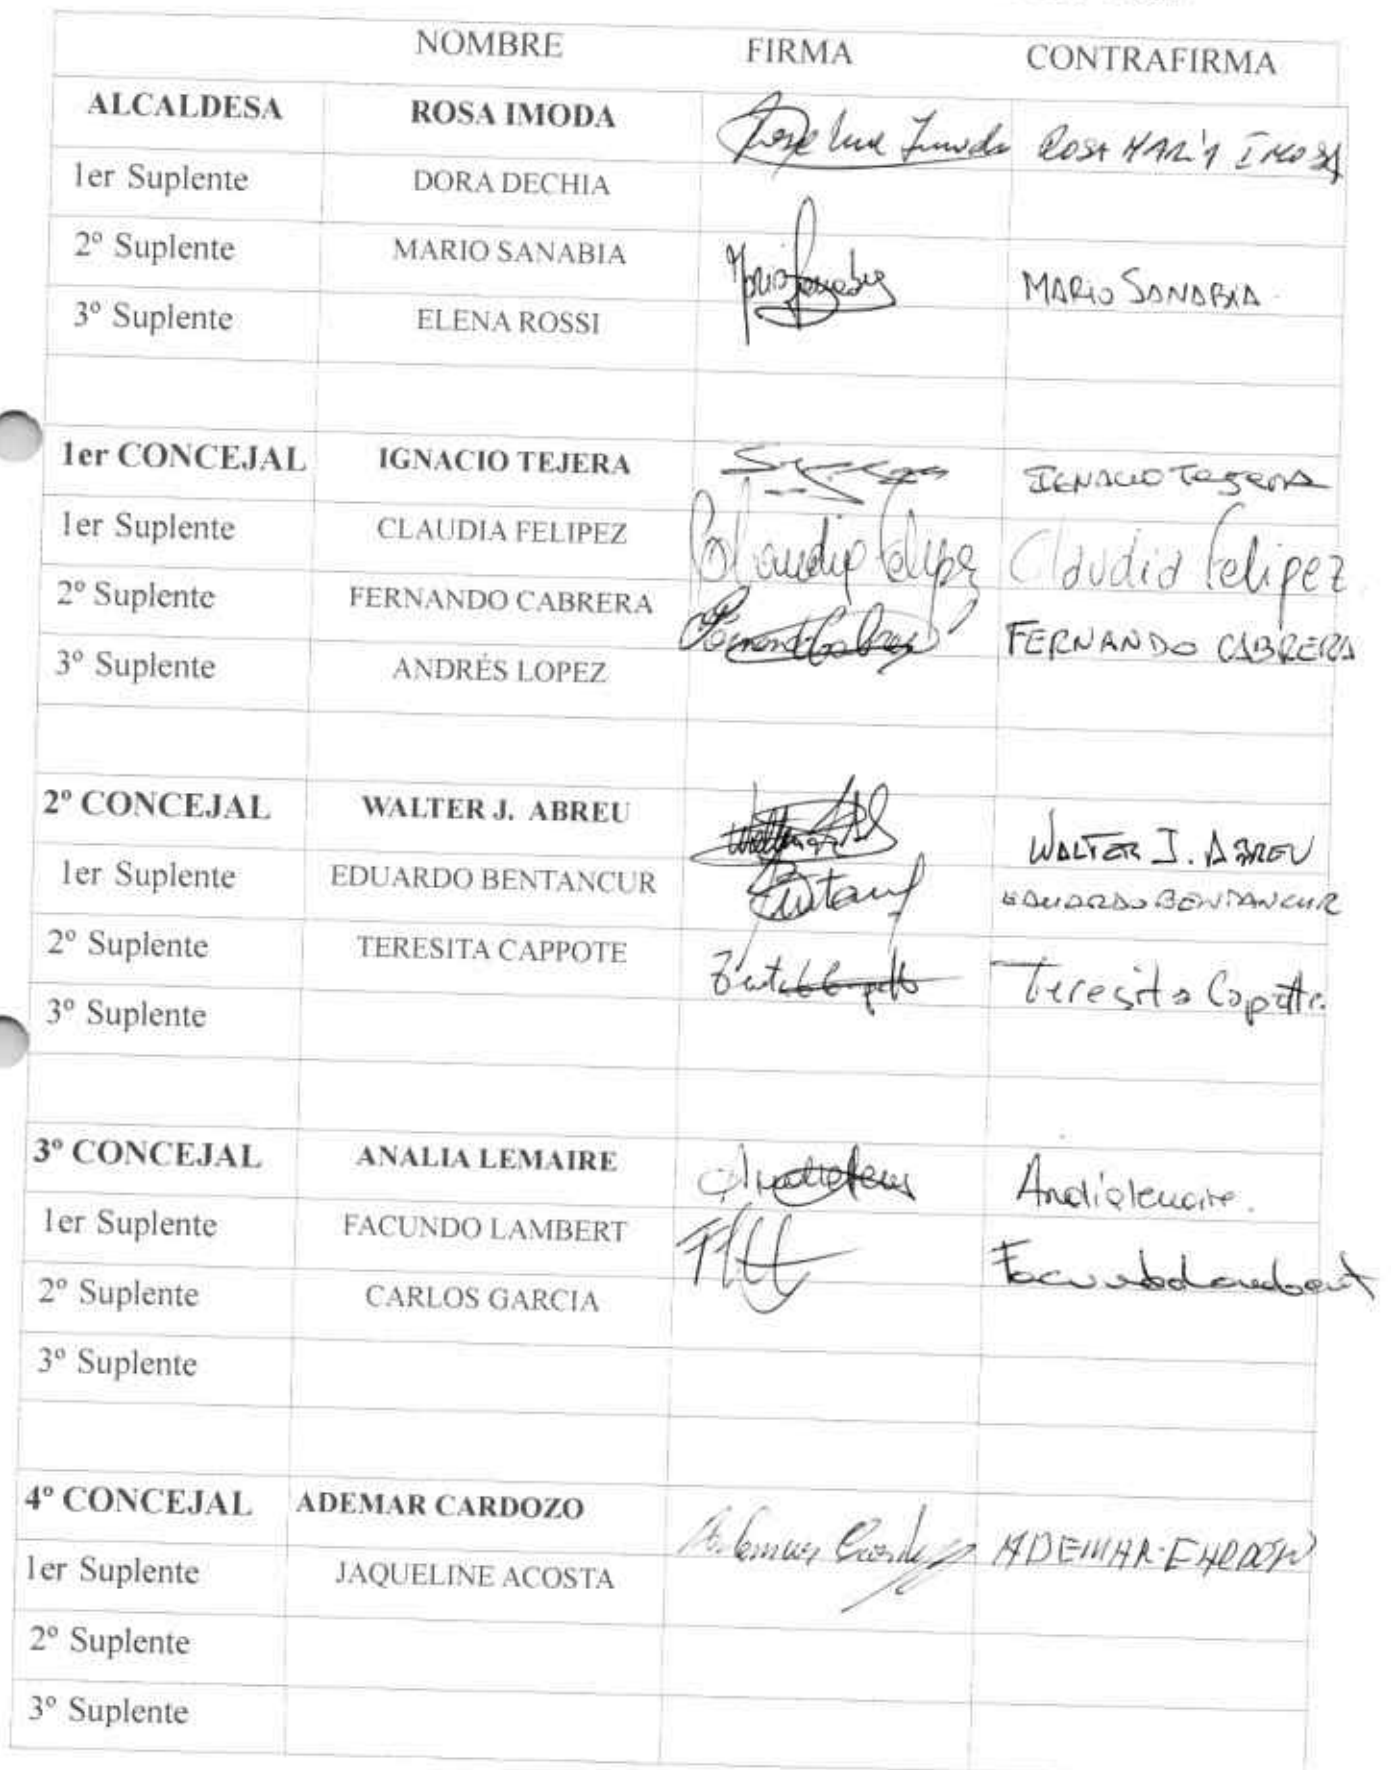 NOMBRE FIRMA CONTRAFIRMA
ALCALDESA ROSA IMODA ROSA MARÍA IMODA
1er Suplente DORA DECHIA
2º Suplente MARIO SANABIA MARIO SANABIA
3º Suplente ELENA ROSSI
1er CONCEJAL IGNACIO TEJERA IGNACIO TEJERA
1er Suplente CLAUDIA FELIPEZ Claudia Felipez Claudia Felipez
2º Suplente FERNANDO CABRERA FERNANDO CABRERA
3º Suplente ANDRÉS LOPEZ
2º CONCEJAL WALTER J. ABREU WALTER J. ABREU
1er Suplente EDUARDO BENTANCUR EDUARDO BENTANCUR
2º Suplente TERESITA CAPPOTE Teresita Capotte.
3º Suplente
3º CONCEJAL ANALIA LEMAIRE Analialemaire.
1er Suplente FACUNDO LAMBERT Facundo Lambert
2º Suplente CARLOS GARCIA
3º Suplente
4º CONCEJAL ADEMAR CARDOZO Ademar Cardozo ADEMAR CARDOZO
1er Suplente JAQUELINE ACOSTA
2º Suplente
3º Suplente